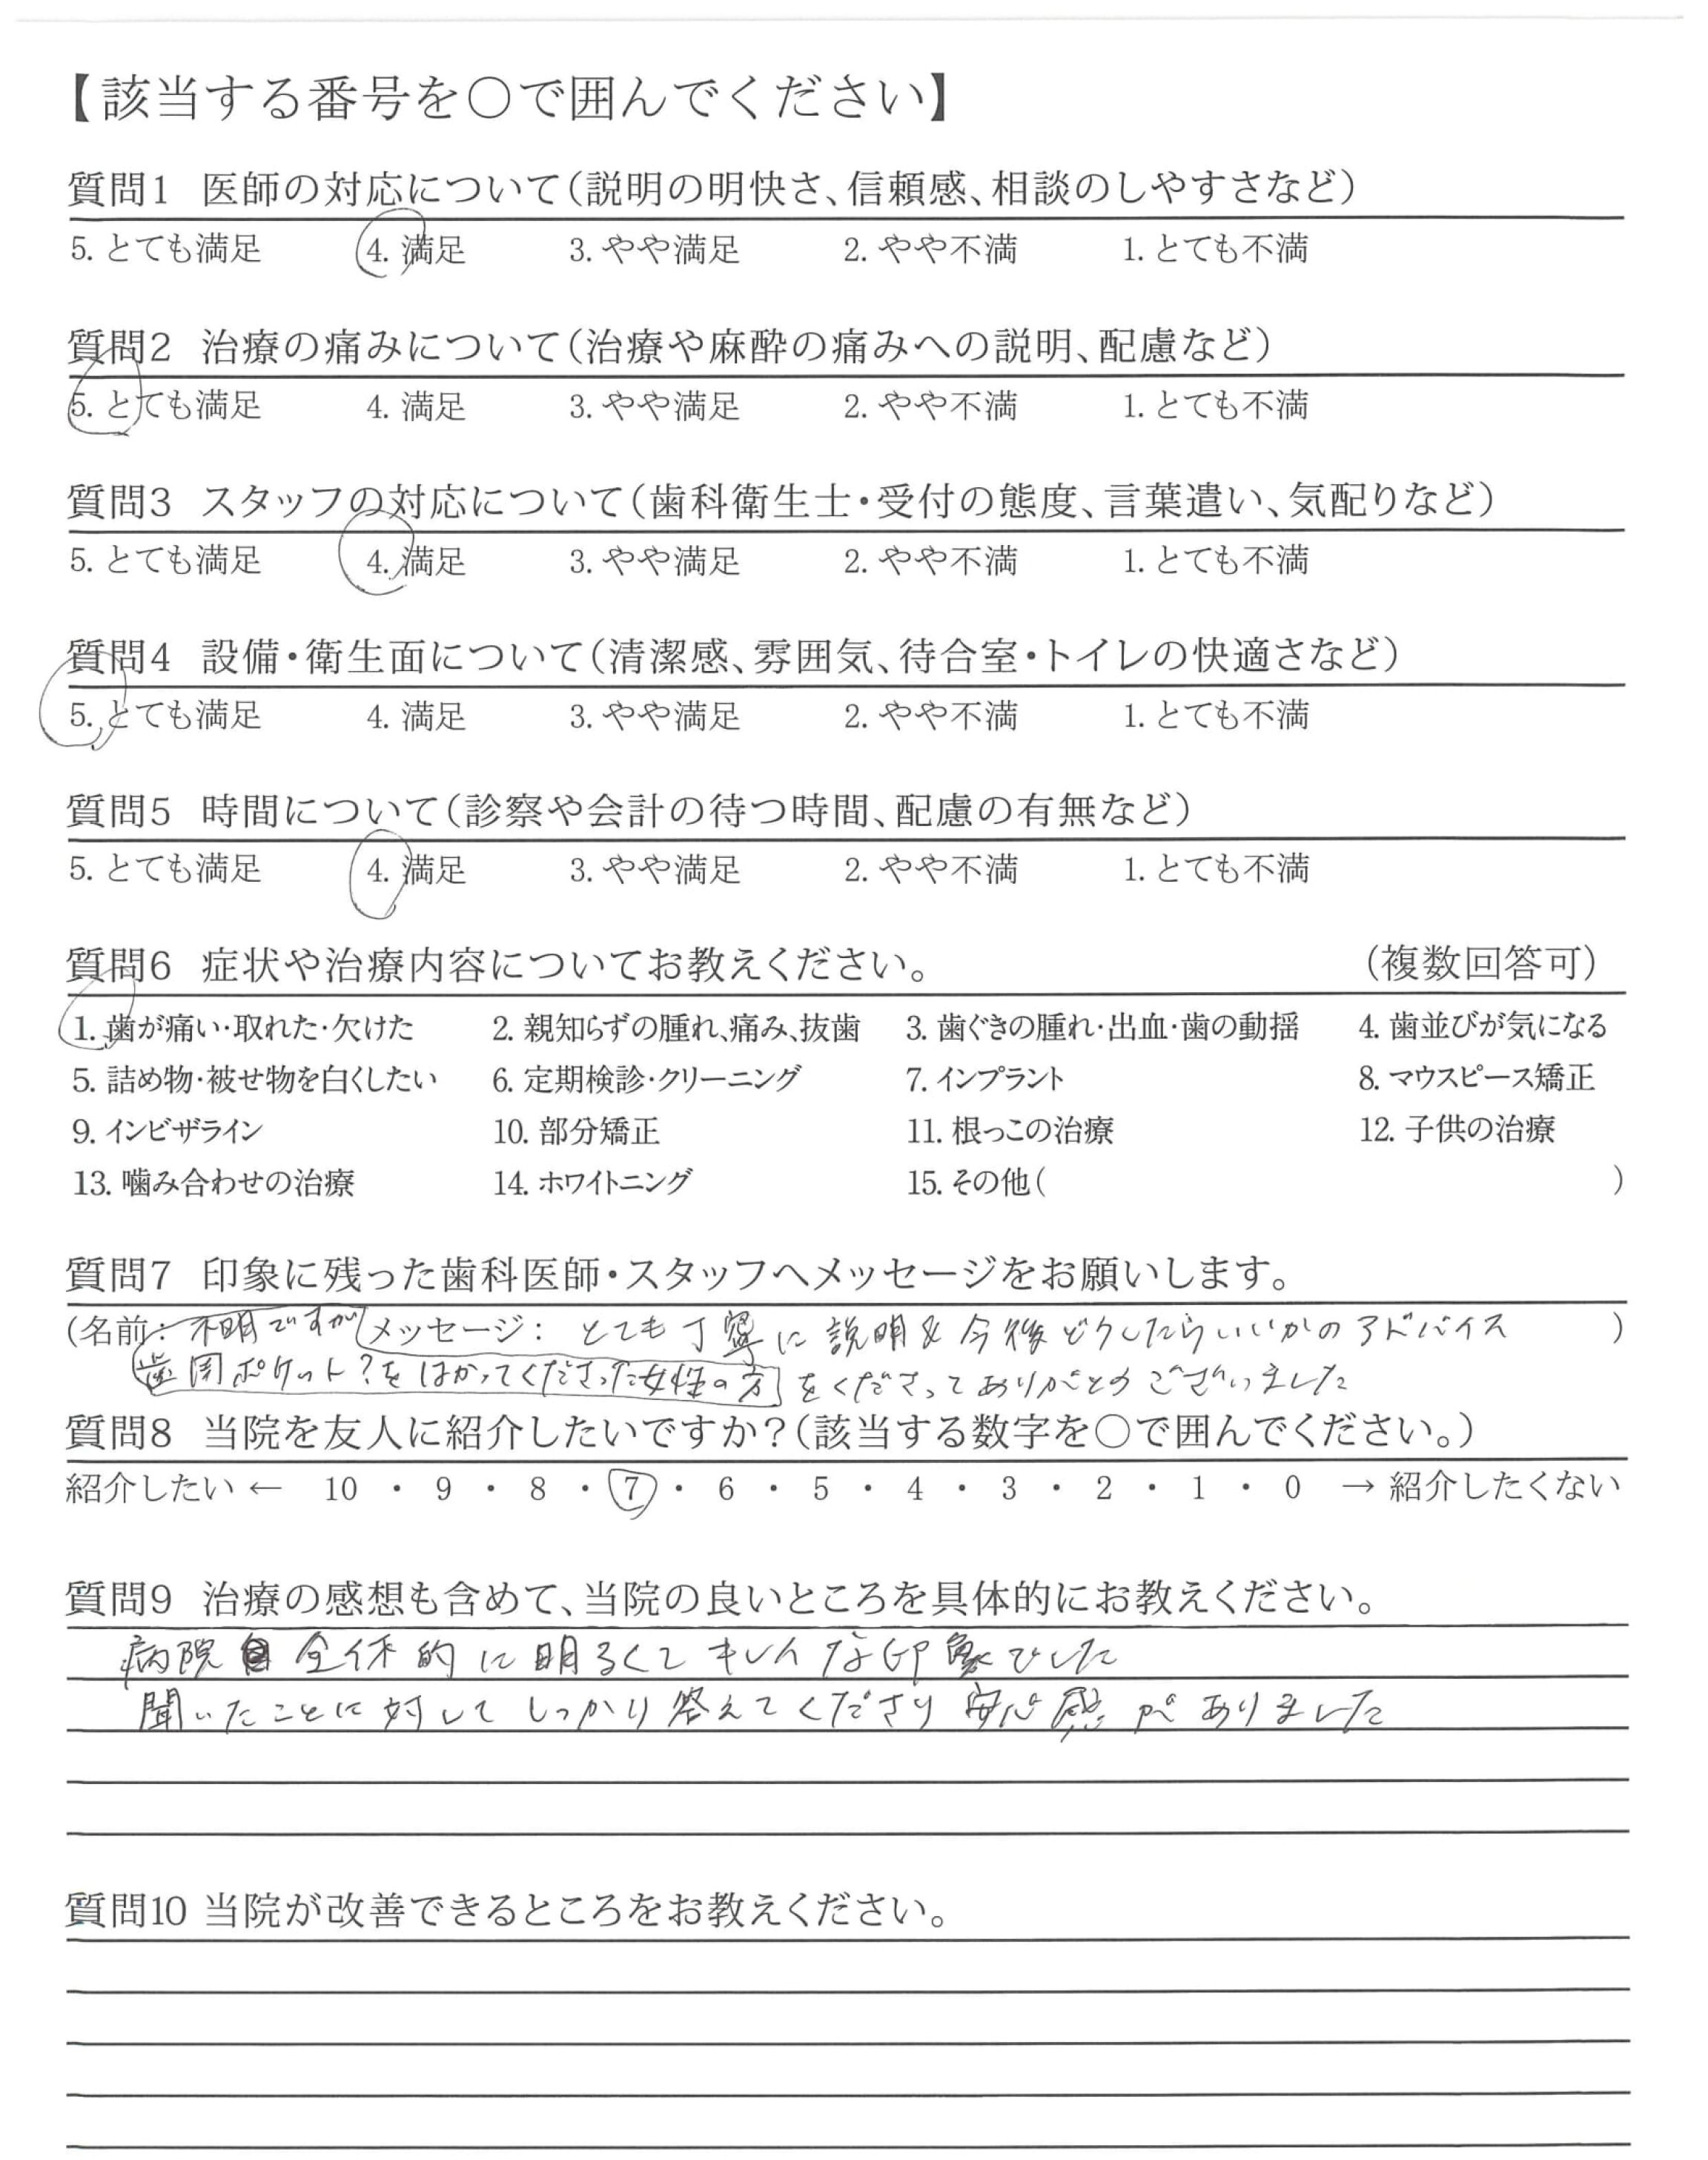 【該当する番号を○で囲んでください】
質問1 医師の対応について(説明の明快さ、信頼感、相談のしやすさなど)
5. とても満足 4. 満足 3. やや満足 2. やや不満 1. とても不満
質問2 治療の痛みについて(治療や麻酔の痛みへの説明、配慮など)
5. とても満足 4. 満足 3. やや満足 2. やや不満 1. とても不満
質問3 スタッフの対応について(歯科衛生士・受付の態度、言葉遣い、気配りなど)
5. とても満足 4. 満足 3. やや満足 2. やや不満 1. とても不満
質問4 設備・衛生面について(清潔感、雰囲気、待合室・トイレの快適さなど)
5. とても満足 4. 満足 3. やや満足 2. やや不満 1. とても不満
質問5 時間について(診察や会計の待つ時間、配慮の有無など)
5. とても満足 4. 満足 3. やや満足 2. やや不満 1. とても不満
質問6 症状や治療内容についてお教えください。 (複数回答可)
1. 歯が痛い・取れた・欠けた 2. 親知らずの腫れ、痛み、抜歯 3. 歯ぐきの腫れ・出血・歯の動揺 4. 歯並びが気になる
5. 詰め物・被せ物を白くしたい 6. 定期検診・クリーニング 7. インプラント 8. マウスピース矯正
9. インビザライン 10. 部分矯正 11. 根っこの治療 12. 子供の治療
13. 噛み合わせの治療 14. ホワイトニング 15. その他( )
質問7 印象に残った歯科医師・スタッフへメッセージをお願いします。
(名前: 不明ですが メッセージ: とても丁寧に説明&今後どうしたらいいかのアドバイス )
歯周ポケット?をはかってくださった女性の方 をくださってありがとうございました
質問8 当院を友人に紹介したいですか?(該当する数字を○で囲んでください。)
紹介したい ← 10 ・ 9 ・ 8 ・ 7 ・ 6 ・ 5 ・ 4 ・ 3 ・ 2 ・ 1 ・ 0 → 紹介したくない
質問9 治療の感想も含めて、当院の良いところを具体的にお教えください。
病院 全体的に明るくてキレイな印象でした
聞いたことに対してしっかり答えてくださり安心感がありました
質問10 当院が改善できるところをお教えください。